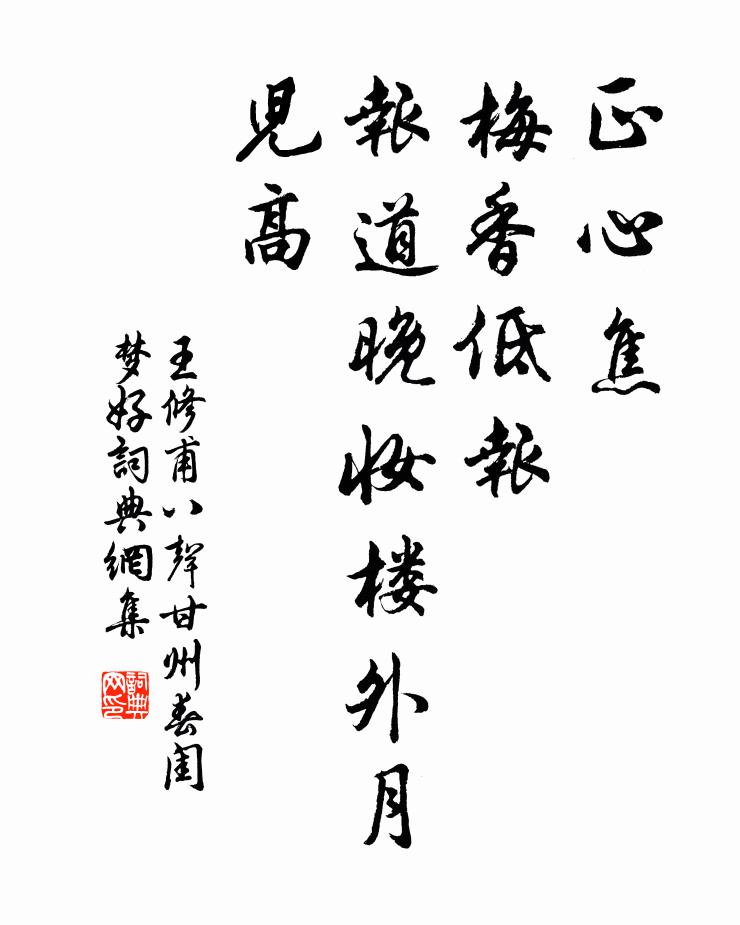 正心焦
梅香低報
報道晚妆楼外月
児高
王修甫八聲甘州春闺
梦好詞典網集
詞典
网印